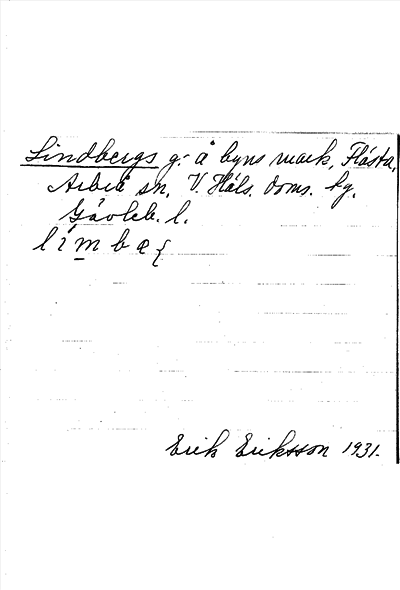 Lindbergs g:- å byns mark, Flästa,
Arbrå sn, V. Häls. doms. hg.
Gävleb. l.
l i m b æ ξ
Erik Eriksson 1931.